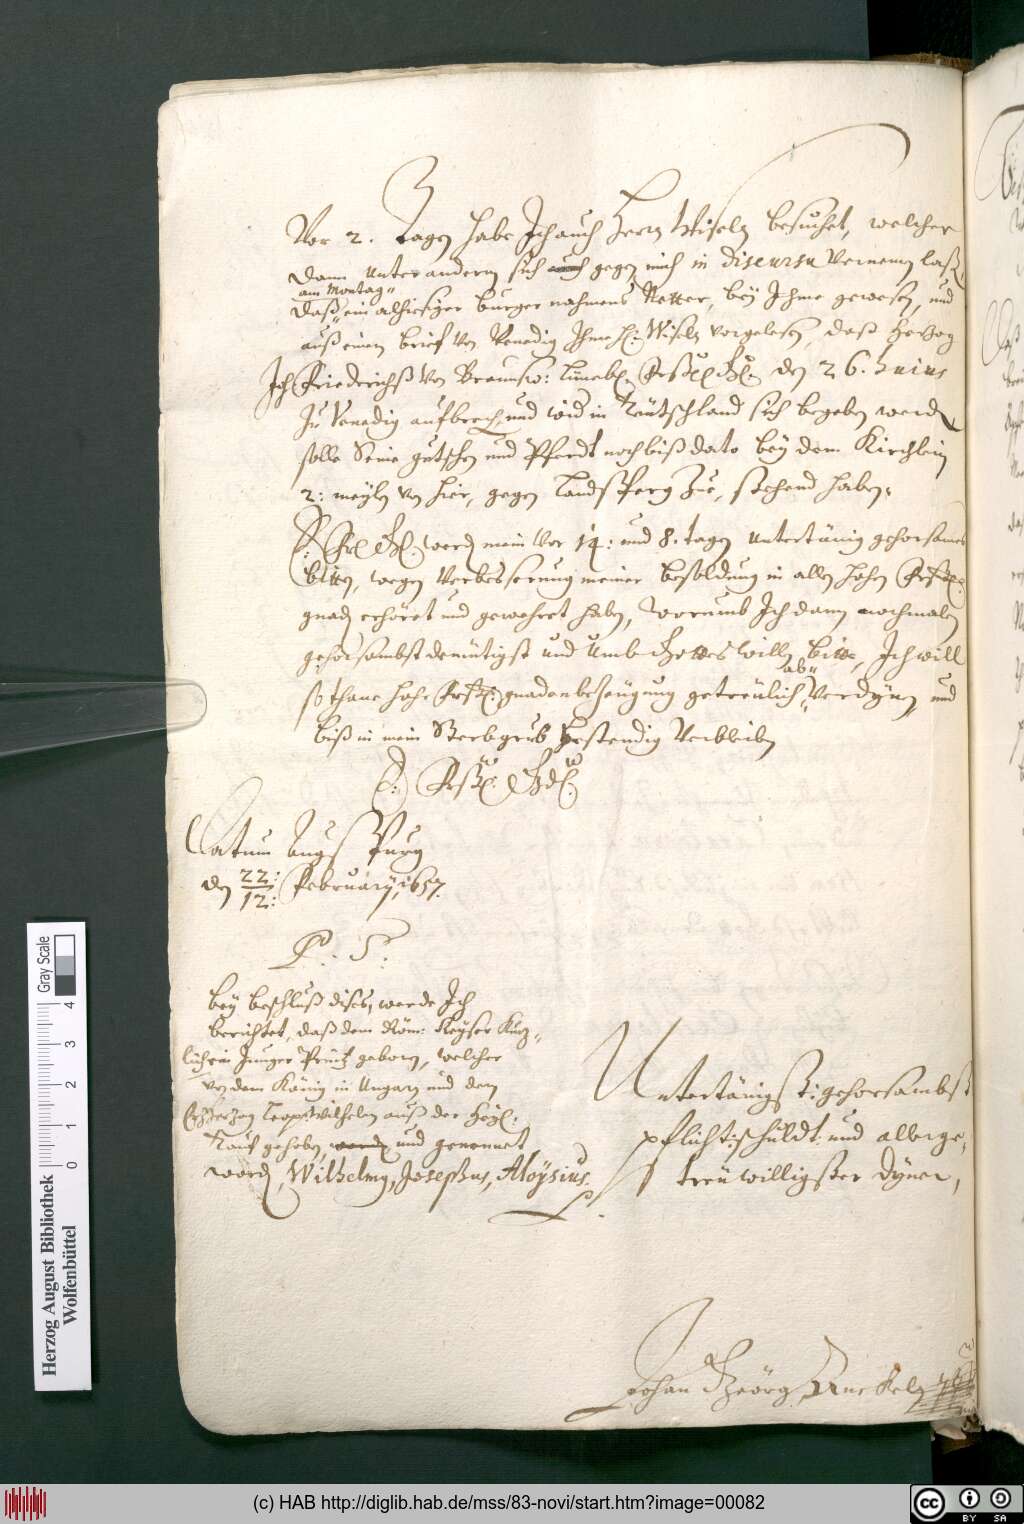 Vor 2. tagen habe Ich auch Herrn Wiseln besuchet, welcher
dann unter andern sich auch gegen mich in discursu vernemen laßen
am Montag
daß ein alhiesiger burger nahmens Netter, bey Ihme gewesen, und
auß einem brief von Venedig Ihme H: Wiseln vorgelesen, daß Herzog
Joh Friederichß von Braunsw: Lüneb. den 26. huius
zu Venedig aufbrechen, und wid in Teütschland sich begeben werden
solle Seine gutschen und Pferdt noch biß dato bey dem Kirchlein
2: meylen von hier, gegen Landsperg zue, stehend haben.
E: werden mein vor 14: und 8. tagen untertänig gehorsames
bitten, wegen verbesserung meiner besoldung in allen hohen
gnaden erhöret und gewehret haben, worumb Ich dann nochmalen
gehorsambst demütigst und umb Gottes willen bitte, Ich will
ab
sothane hohe gnadenbezeugung getreülich verdynen, und
biß in mein Sterbgrub bestendig verbleiben
E:
Datum Augspurg
den 22: February, 1657.
12:
P. S.
bey beschluß dises, werde Ich
berichtet, daß dem Röm: Keyser kurz-
lich ein Junger Printz geboren, welcher
von dem König in Ungarn und dem
Erzherzog Leop: Wilhelm auß der Heyl:
Tauf gehoben, und genennet
worden, Wilhelmus, Josephus, Aloÿsius.
Untertänigst: gehorsambst
pflicht: schuldt: und allerge-
treü willigster dyner,
Johan Geörg Anckel
Herzog August Bibliothek
Wolfenbüttel
0 1 2 3 4
Gray Scale
(c) HAB http://diglib.hab.de/mss/83-novi/start.htm?image=00082
cc BY SA